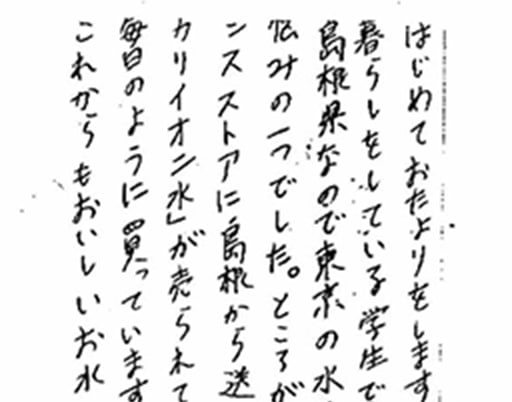 はじめておたよりをします
暮らしをしている学生で
島根県なので東京の水
悩みの一つでした。ところが
ンスストアに島根から送
カリイオン水」が売られて
毎日のように買っています
これからもおいしいお水